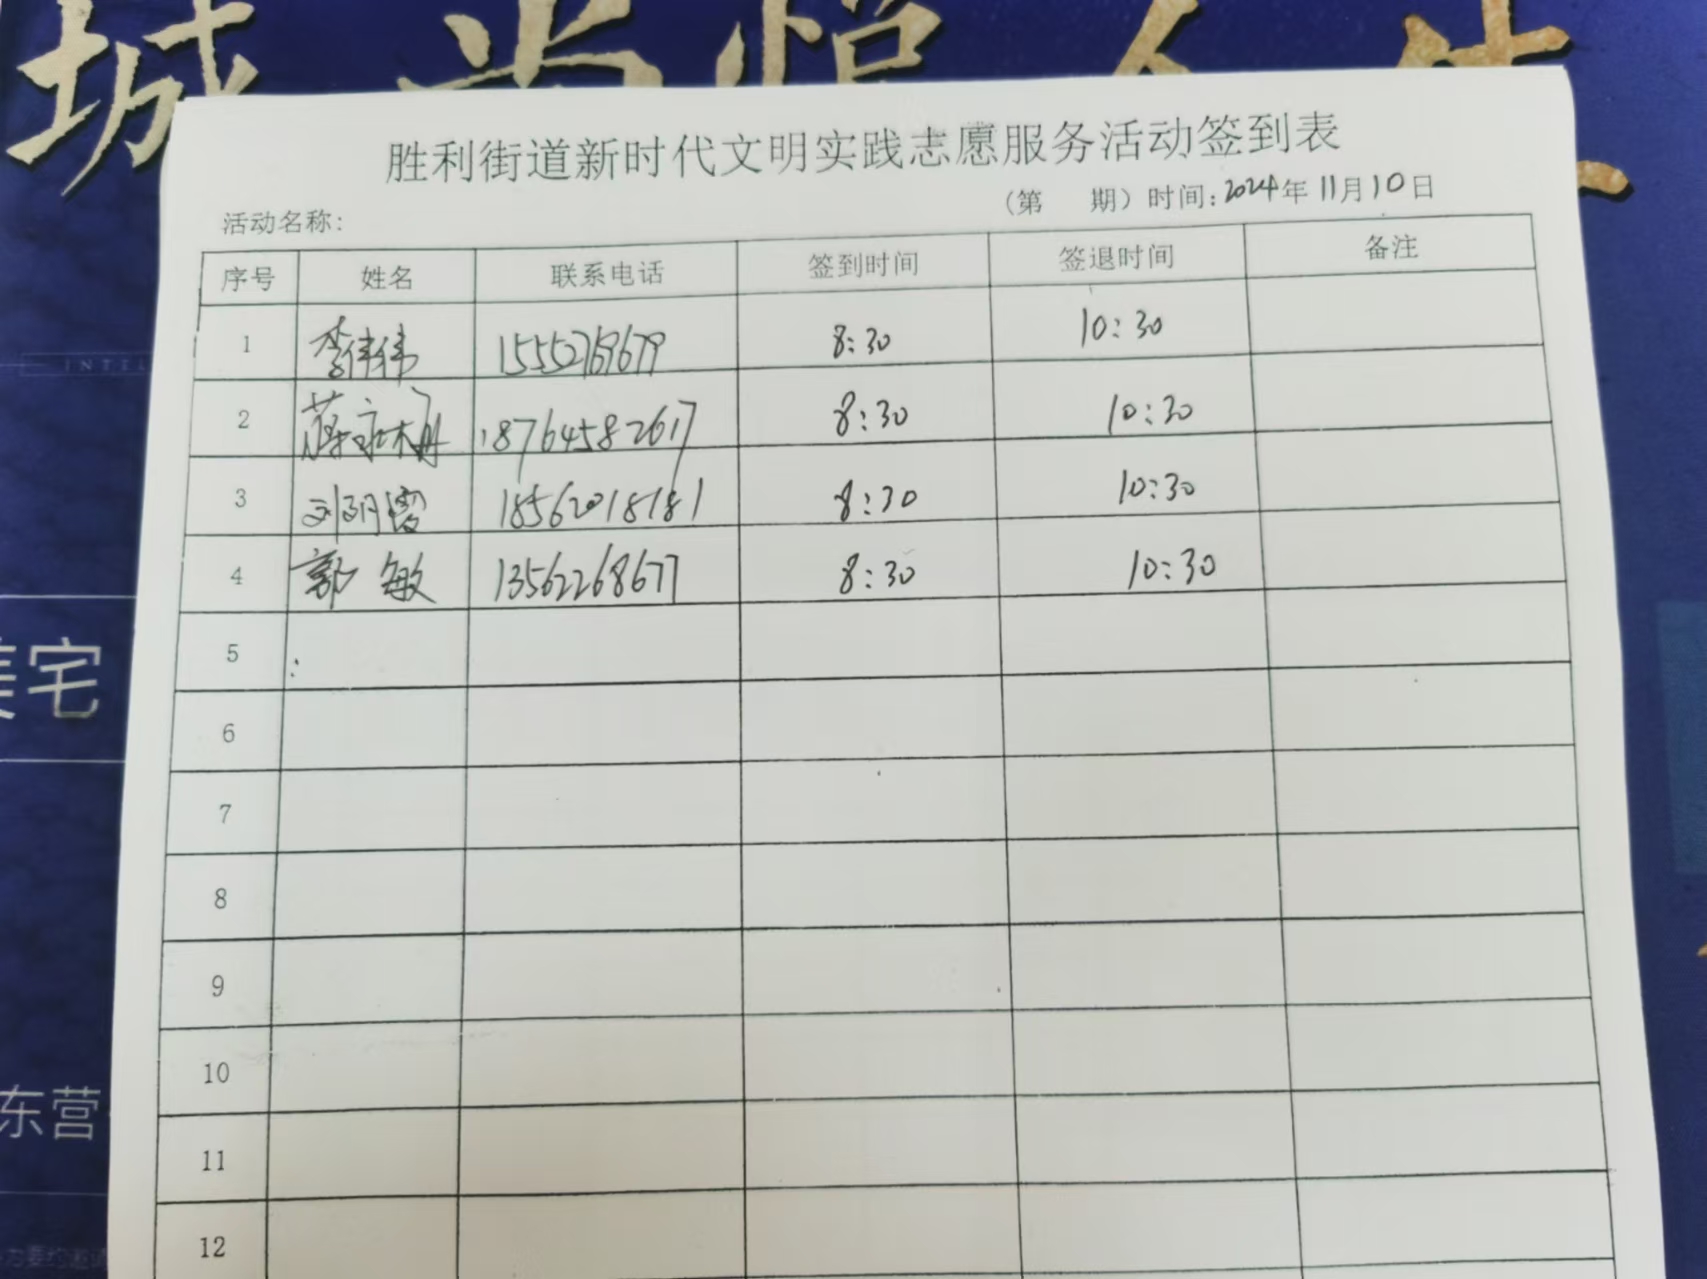 城 尚 悦 人 生
胜利街道新时代文明实践志愿服务活动签到表
(第 期) 时间: 2024年 11月 10日
活动名称:
序号 姓名 联系电话 签到时间 签退时间 备注
1 李伟伟 15552769679 8:30 10:30
2 蒋永梅 18764582617 8:30 10:30
3 刘明霞 18562018181 8:30 10:30
4 郭敏 13562268677 8:30 10:30
5
6
7
8
9
10
11
12
美宅
东营